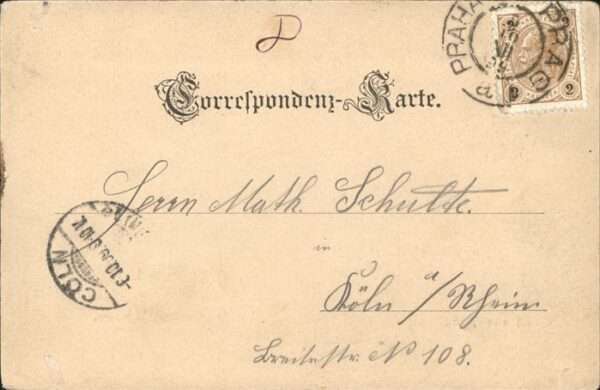 D
PRAHA PRAG
2 2
Correspondenz-Karte.
Herrn Math. Schulte.
in
Köln a/Rhein
Breitestr. No 108.
CÖLN